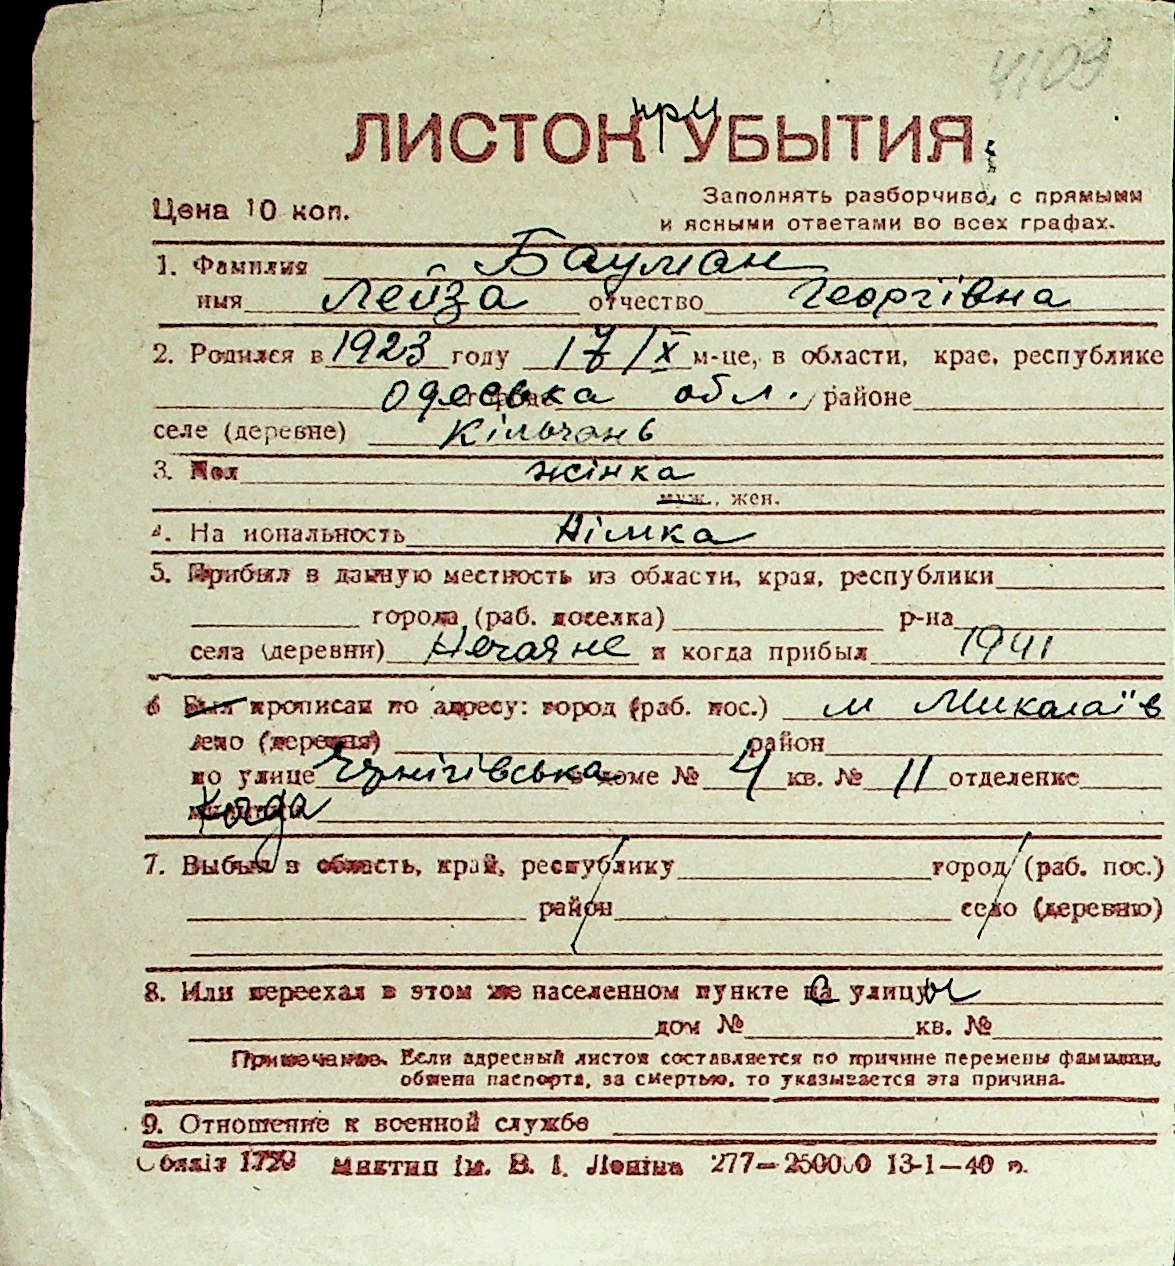 4109
ЛИСТОК при УБЫТИЯ
Цена 10 коп.
Заполнять разборчиво, с прямыми
и ясными ответами во всех графах.
1. Фамилия Бауман
имя Лейза отчество Георгівна
2. Родился в 1923 году 17/IX м-це, в области, крае, республике
Одеська обл. районе
селе (деревне) Кільчань
3. Пол жінка
муж., жен.
4. На иональность Німка
5. Прибыл в данную местность из области, края, республики
города (раб. поселка) р-на
села (деревни) Нечаяне и когда прибыл 1941
6 Был прописан по адресу: город (раб. пос.) м Миколаїв
село (деревня) район
по улице Чернігівська в доме № 4 кв. № 11 отделение
Когда
7. Выбыл в область, край, республику город (раб. пос.)
район село (деревню)
8. Или переехал в этом же населенном пункте с улицы
дом № кв. №
Примечание. Если адресный листок составляется по причине перемены фамилии,
обмена паспорта, за смертью, то указывается эта причина.
9. Отношение к военной службе
Обяліт 1729 Миктип ім. В. І. Леніна 277—250000 13-1—40 р.